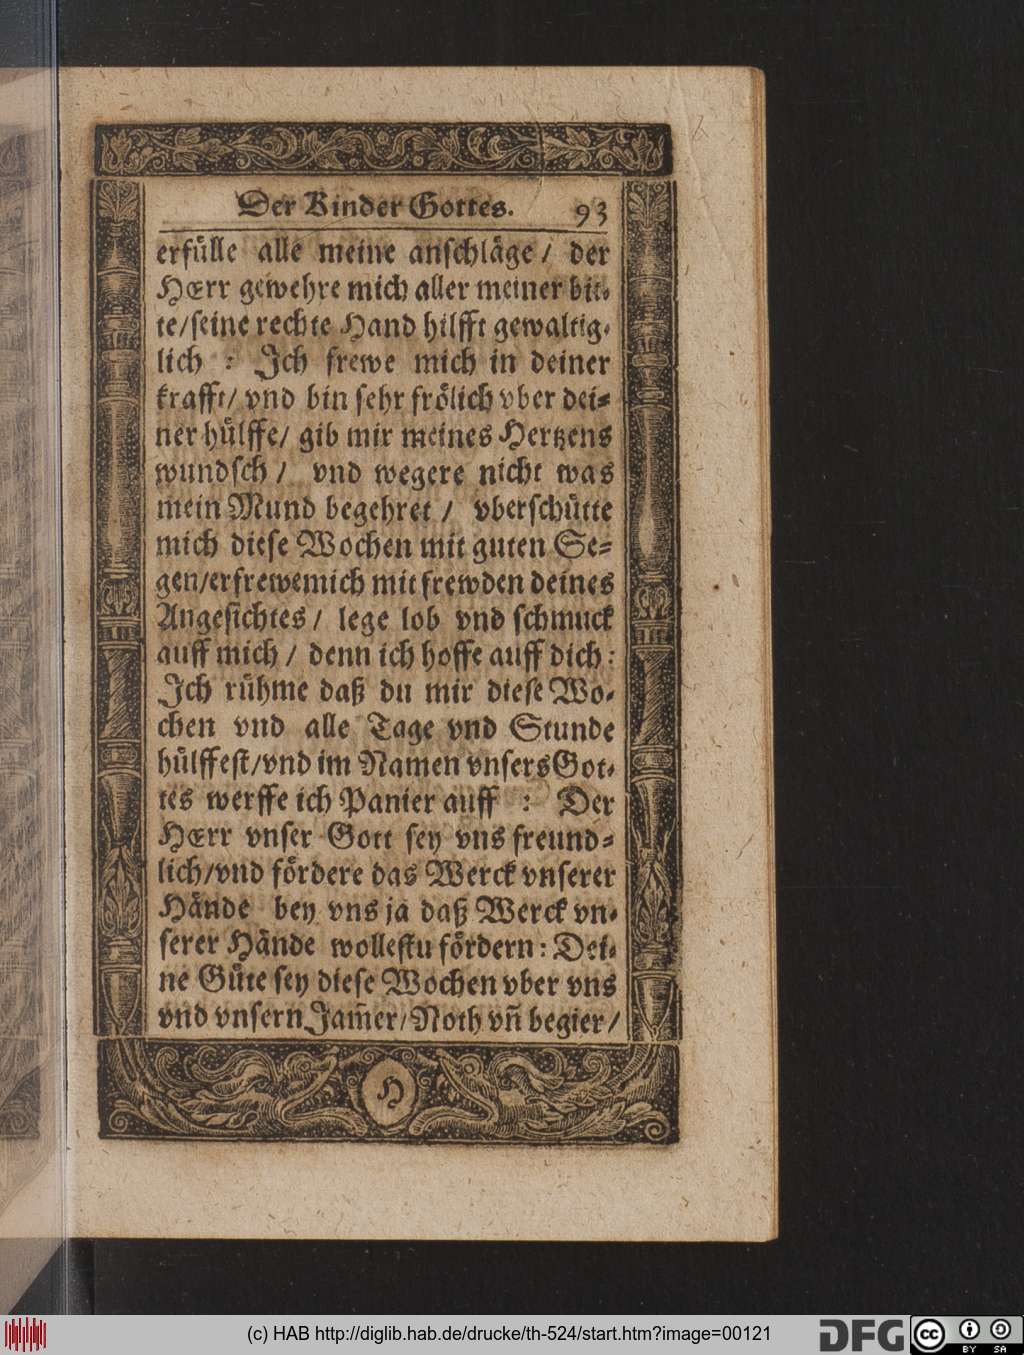 Der Kinder Gottes. 93
erfülle alle meine anschläge / der
HErr gewehre mich aller meiner bit-
te/seine rechte Hand hilfft gewaltig-
lich : Ich frewe mich in deiner
krafft/ vnd bin sehr frölich vber dei-
ner hülffe/ gib mir meines Hertzens
wundsch / vnd wegere nicht was
mein Mund begehret / vberschütte
mich diese Wochen mit guten Se-
gen/erfrewemich mit frewden deines
Angesichtes / lege lob vnd schmuck
auff mich / denn ich hoffe auff dich :
Ich rühme daß du mir diese Wo-
chen vnd alle Tage vnd Stunde
hülffest/vnd im Namen vnsers Got-
tes werffe ich Panier auff : Der
HErr vnser Gott sey vns freund-
lich/vnd fördere das Werck vnserer
Hände bey vns ja daß Werck vn-
serer Hände wollestu fördern : Dei-
ne Güte sey diese Wochen vber vns
vnd vnsern Jam̃er/Noth vn̄ begier /
H
(c) HAB http://diglib.hab.de/drucke/th-524/start.htm?image=00121
DFG
cc BY SA